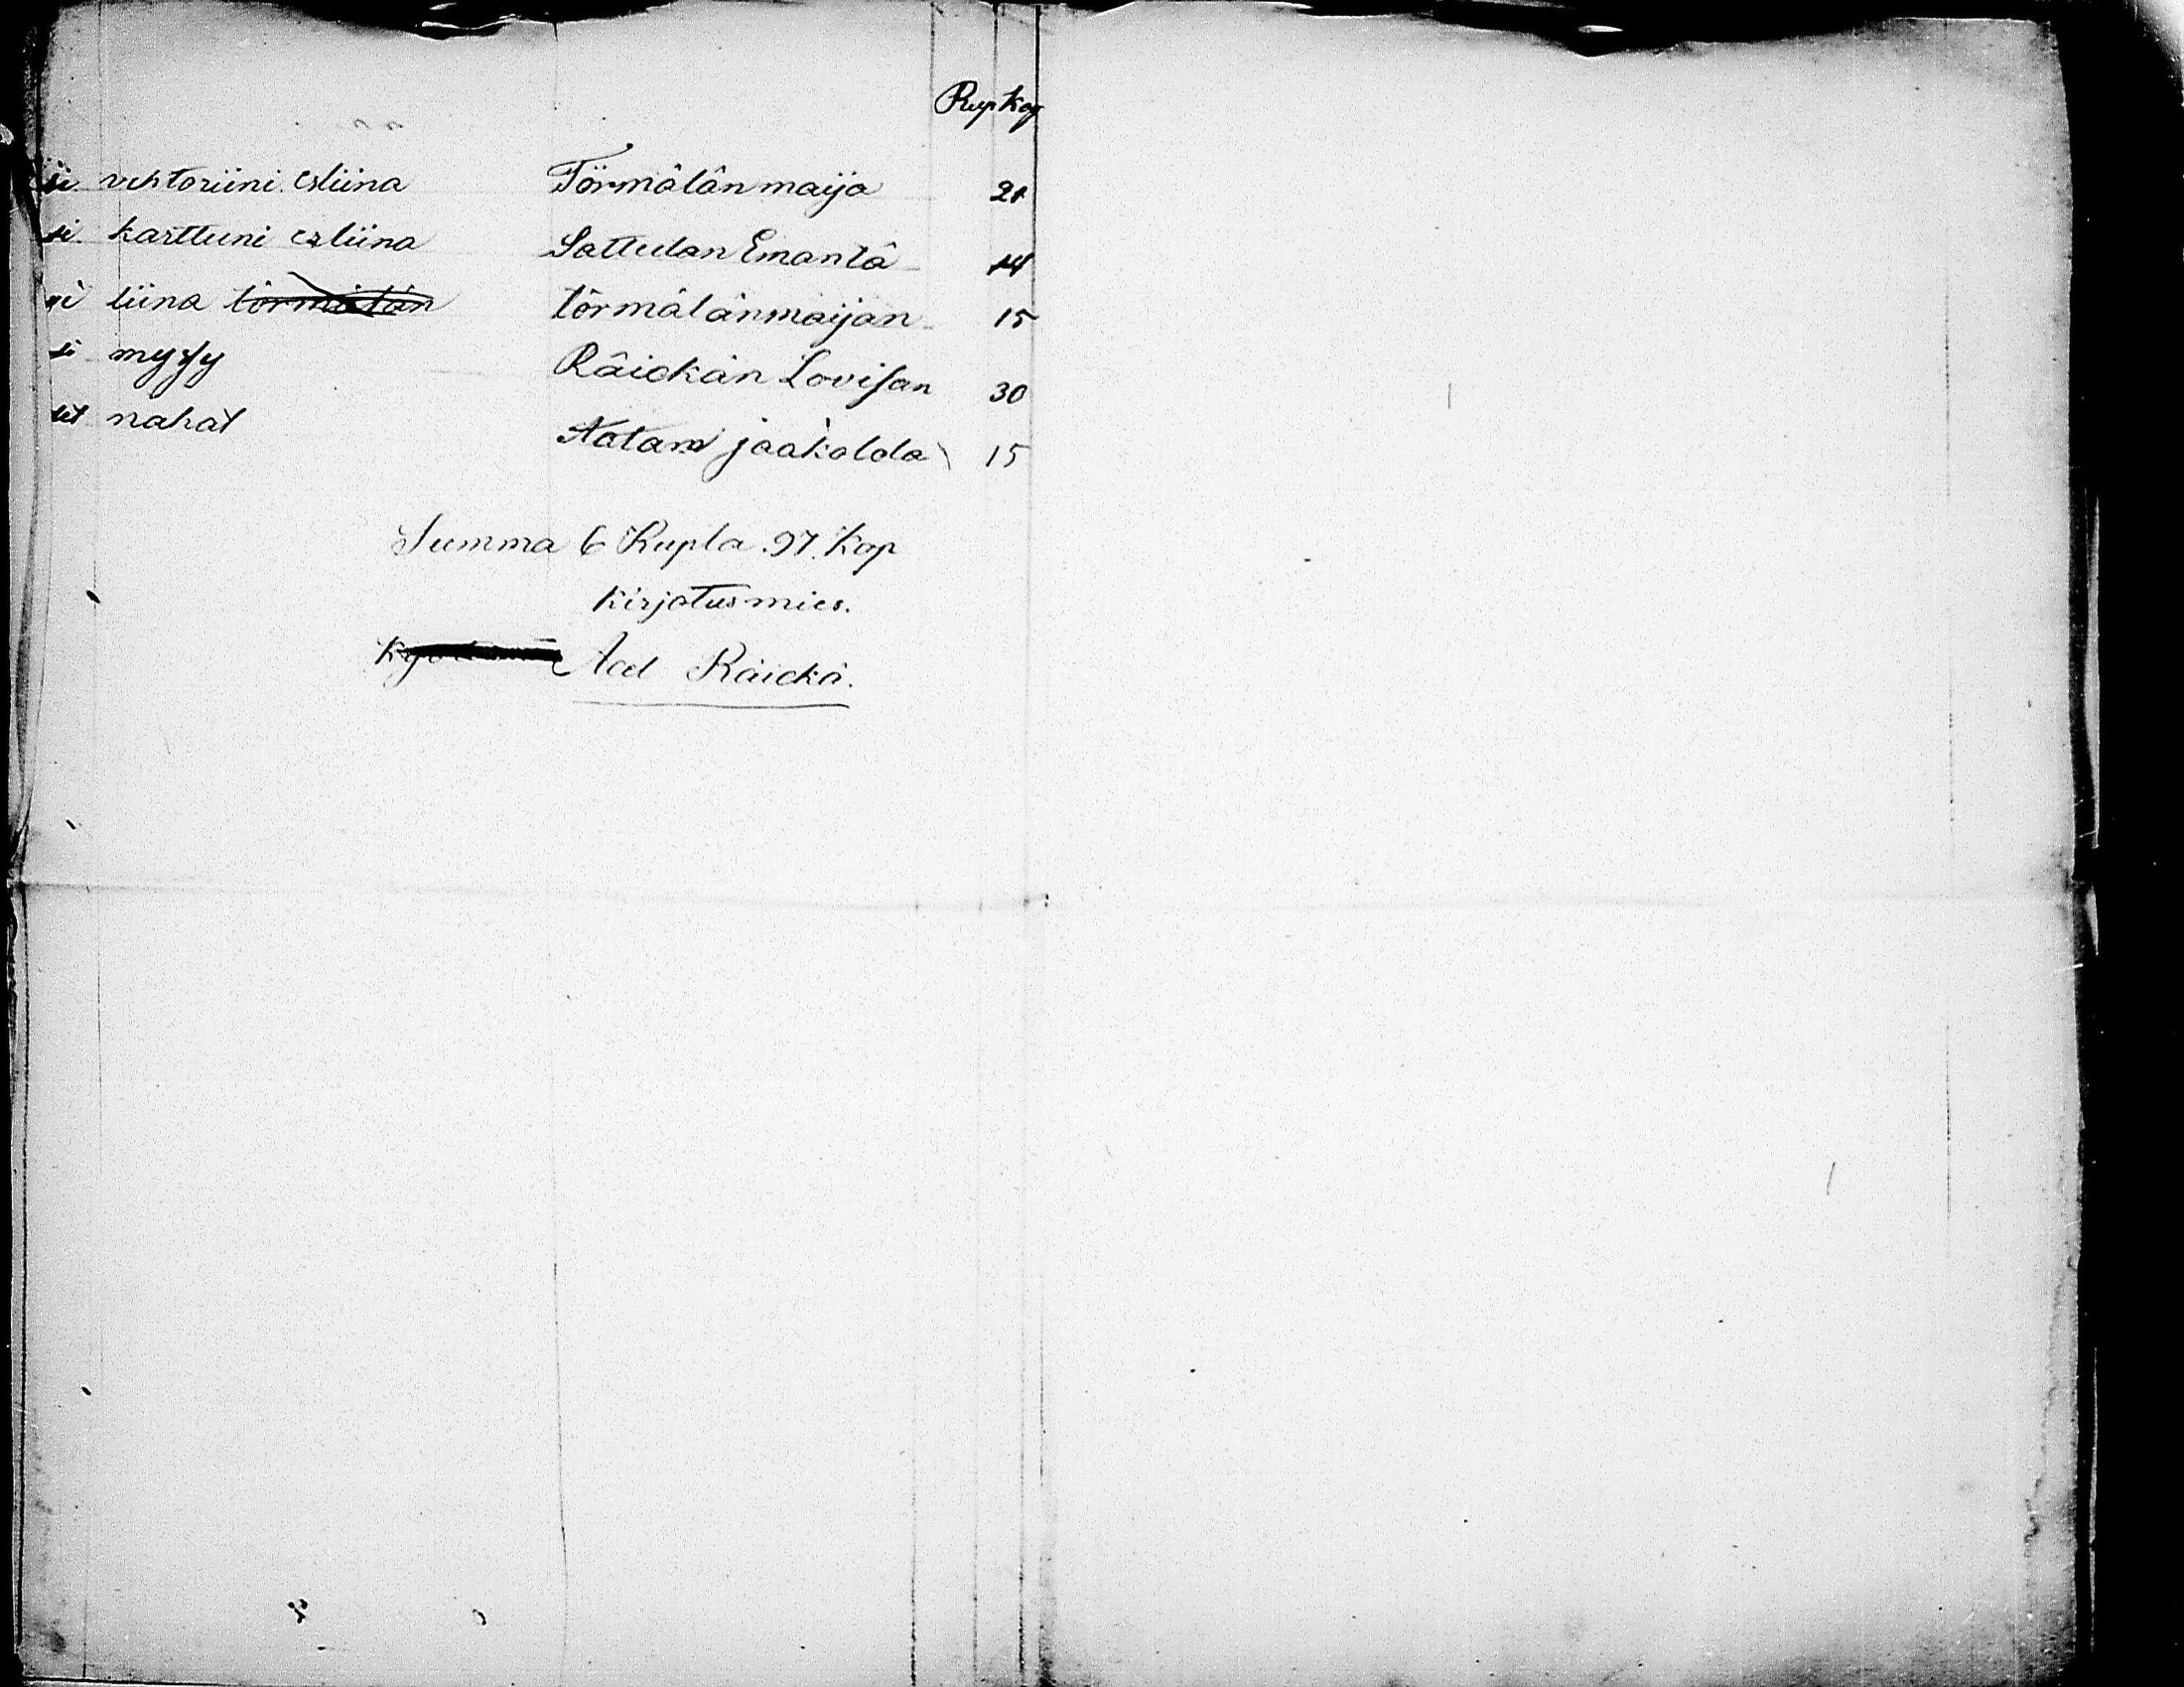 Rup Kop
si vehtoriini esliina Törmälän maija 21
si karttuni esliina Sattulan Emäntä 14
si liina törmälän törmälänmaijan 15
si myssy Räickän Lovisan 30
set nahat Aatami jaakolda 15
Summa 6 Rupla .97. Kop
Kirjatusmies.
Aad Räickä.